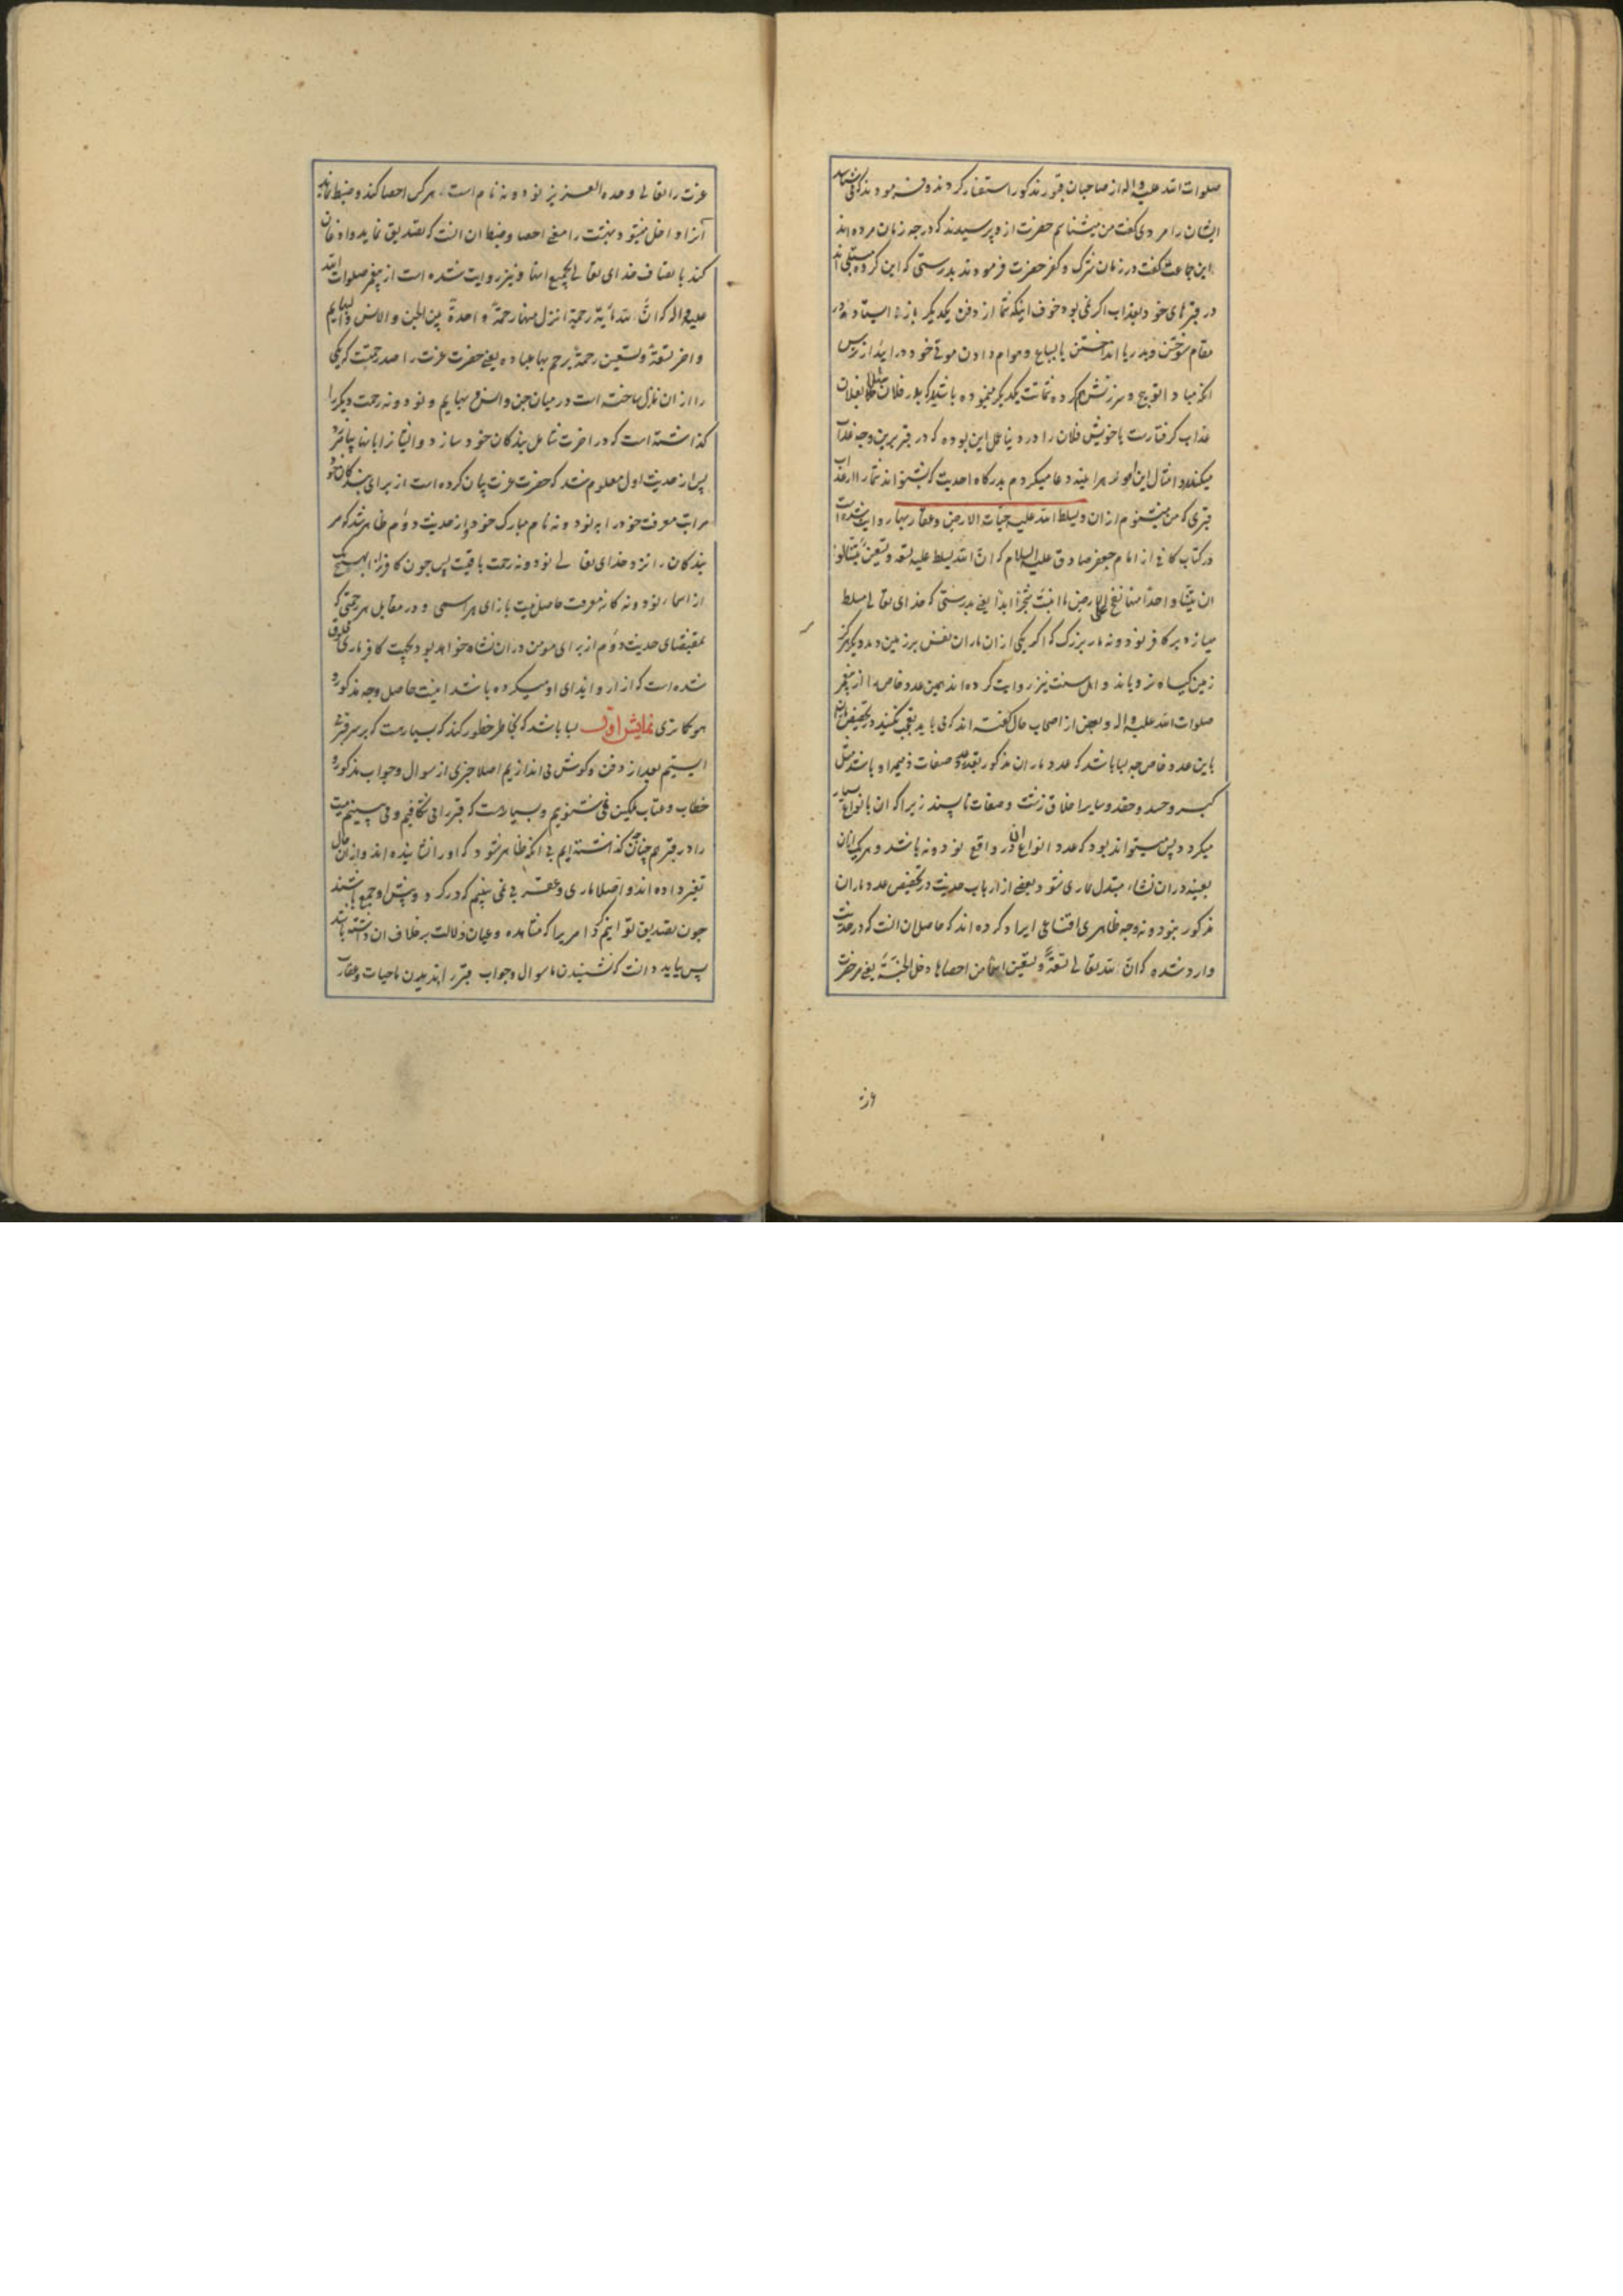 صلوات الله علیه واله از صاحبان قبور مذکور استفسار کردند و فرمودند که می‌شناسد
ایشان را مردی گفت من میشناسم حضرت ازو پرسیدند که در چه زمان مرده‌اند
این جماعت گفت در زمان شرک و کفر حضرت فرمودند بدرستی که این کروه مبتلی‌اند
در قبرهای خود بعذاب اکر نمی بود خوف اینکه شما از دفن یکدیکر باز ایستاده در
مقام سوختن و بدریا انداختن یا بسباع و هوام دادن موتی خود درایید از ترس
انکه مبادا توبیخ و سرزنش هم کرده شماتت یکدیکر مینموده باشید که پدر فلان مثلا بفلان
عذاب کرفتارست یا خویش فلان را در دنیا عمل این بوده که در قبر برین وجه عذاب
میکنند و امثال این امور هراینه دعا میکردم بدرکاه احدیت که بشنواند شما را از عذاب
قبری که من میشنوم از ان و یسلط الله علیه حیات الارض و عقاربها روایت شده است
در کتاب کافی از امام جعفر صادق علیه السلام که ان الله یسلط علیه تسعة و تسعین تنینا لو
ان تنینا واحدا منها نفخ علی الارض ما انبتت شجرا ابدا یعنی بدرستی که خدای تعالی مسلط
میسازد بر کافر نود و نه مار بزرک که اکر یکی از ان ماران نفس بر زمین دمد دیکر هرکز
زمین کیاه نرویاند و اهل سنت نیز روایت کرده‌اند همین عدد خاص را از پیغمبر
صلوات الله علیه واله و بعضی از اصحاب حال کفته‌اند که نمی باید تعجب نکنید در تخصیص ماران
باین عدد خاص چه بسا باشد که عدد ماران مذکور بقدر عدد صفات ذمیمه او باشد مثل
کبر و حسد و حقد و سایر اخلاق زشت و صفات ناپسند زیرا که ان بانواع بسیار
میکردد پس میتواند بود که عدد انواع ان در واقع نود و نه باشد و هریک از ان
بعینه در ان نشاء مبتدل بماری شود و بعضی از ارباب حدیث در تخصیص عدد ماران
مذکور بنود و نه وجه ظاهری اقناعی ایراد کرده‌اند که حاصل ان انست که در حدیث
وارد شده که ان لله تعالی تسعة و تسعین اسما من احصاها دخل الجنة یعنی مر حضرت
عزت
عزت را تعالی وحده العزیز نود و نه نام است هر کس احصا کند و ضبط نماید
انرا داخل میشود ببهشت را معنی احصا و ضبط ان انست که تصدیق نماید و اذعان
کند باتصاف خدای تعالی بجمیع انها و نیز روایت شده است از پیغمبر صلوات الله
علیه واله که ان لله مائة رحمة انزل منها رحمة واحدة بین الجن والانس والبهایم
واخر تسعة و تسعین رحمة یرحم بها عباده یعنی حضرت عزت را صد رحمتست که یکی
را از ان نازل ساخته است در میان جن و انس و بهایم و نود و نه رحمت دیکر را
کذاشته است که در اخرت شامل بندکان خود سازد و ایشانرا بانها بیامرزد
پس از حدیث اول معلوم شد که حضرت عزت بیان کرده است از برای بندکان خود
مراتب معرفت خود را به نود و نه نام مبارک خود و از حدیث دوم ظاهر شد که مر
بندکان را نزد خدای تعالی نود و نه رحمت باقیست پس چون کافر را بهیچ یک
از اسماء نود و نه کانه معرفت حاصل نیست بازای هر اسمی و در مقابل هر رحمتی که
بمقتضای حدیث دوم از برای مومن در ان نشاء خواهد بود بجهت کافر ماری مخلوق
شده است که ازار و ایذای او میکرده باشد اینست حاصل وجه مذکور و
هوکما تری نمایش اول بسا باشد که بخاطر خطور کند که بسیارست که بر سر قبر
ایستیم بعد از دفن و کوش می اندازیم اصلا چیزی از سوال و جواب مذکور و
خطاب و عتاب ملکین نمی شنویم و بسیارست که قبر را می شکافیم و می بینیم میت
را در قبر هم چنانکه کذاشته ایم بی انکه ظاهر شود که او را نشانیده‌اند و از ان حال
تغیر داده‌اند و اصلا ماری و عقربی نمی بینیم که در کرد و پیش او جمع باشند
چون تصدیق توانیم کرد امریرا که مشاهده و عیان دلالت بر خلاف ان داشته باشد
پس بباید دانست که نشنیدن ما سوال و جواب قبر را و ندیدن ما حیات و عقارب